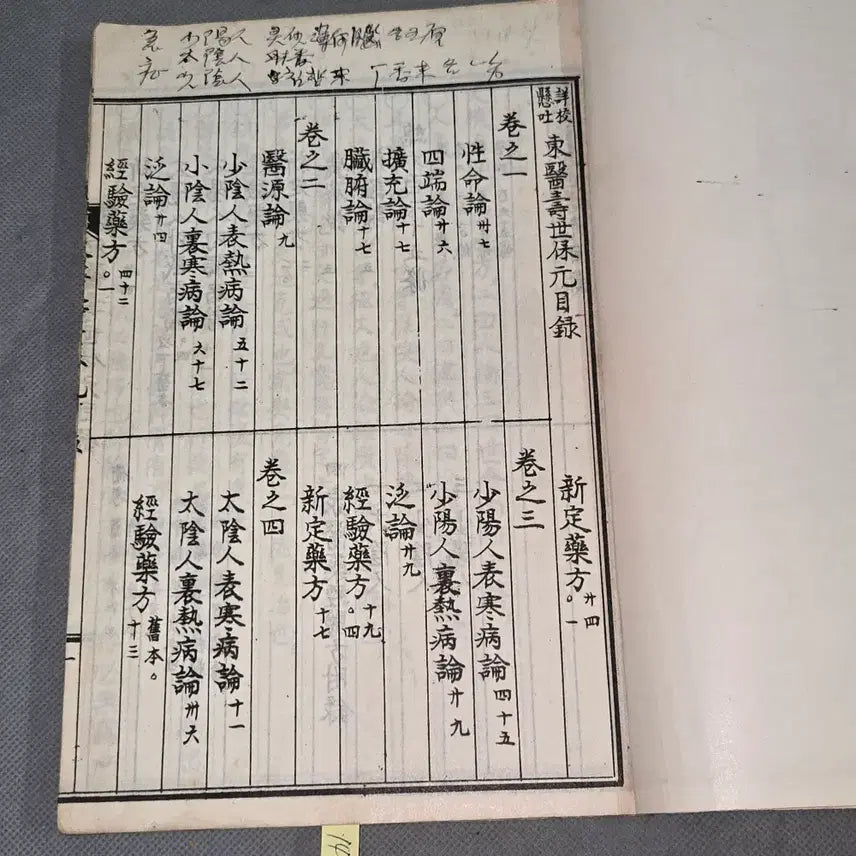 急 少陽人
太陰人
症 少陰人
詳校懸吐 東醫壽世保元目錄
卷之一
性命論 卅七
四端論 廿六
擴充論 十七
臟腑論 十七
卷之二
醫源論 九
少陰人表熱病論 五十二
小陰人裏寒病論 六十七
泛論 廿四
經驗藥方 四十二。一
新定藥方 廿四。一
卷之三
少陽人表寒病論 四十五
少陽人裏熱病論 廿九
泛論 廿九
經驗藥方 十九。四
新定藥方 十七
卷之四
太陰人表寒病論 十一
太陰人裏熱病論 卅六
經驗藥方 舊本。十三
一